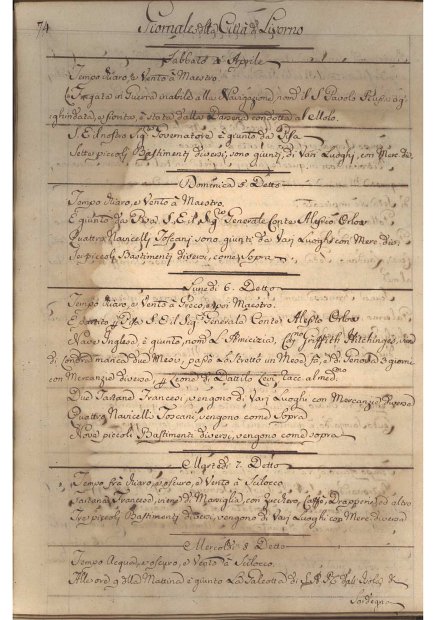 74
Giornale della Città di Livorno
Sabbato 4 Aprile
Tempo chiaro, e Vento à Maestro.
Fregata in Guerra inabile alla Navigazione, nom. S. Pavola Russa
ghindata, e fonte, è stata dalla Darsena condotta al Molo.
S. E. il nostro Sig.re Governatore è giunto da Pisa
Sette piccoli Bastimenti diversi, sono giunti di Vari Luoghi, con Merc. die.
Domenica 5. Detto
Tempo chiaro, e Vento à Maestro.
È giunto da Pisa S. E. il Sig.re Generale Conte Alessio Orlow
Quattro Navicelli Toscani sono giunti da Vari Luoghi con Merc. die.
Sei piccoli Bastimenti diversi, come Sopra
Lunedì 6. Detto
Tempo chiaro, e Vento à Greco, e poi Maestro.
È partito p. Pisa S. E. il Sig.re Generale Conte Alessio Orlow
Nave Inglese, è giunta, nom. L'Amicizia, Cap.no Griffith Hitchings,
di Londra manca due Mesi, passò lo stretto in Mese, e di Genova 3 giorni
con Mercanzie diverse p. Leone di Dattilo Levi, racc. al med.mo
Due Tartane Francesi, vengono di Vari Luoghi con Mercanzie diverse
Quattro Navicelli Toscani, vengono come Sopra
Nove piccoli Bastimenti diversi, vengono come sopra
Martedì 7. Detto
Tempo frà chiaro, e oscuro, e Vento à Scilocco
Tartana Francese, viene di Marsiglia, con Zucchero, Caffè, Drapperie, ed altro
Tre piccoli Bastimenti diversi, vengono di Vari Luoghi con Merc. diverse
Mercoledì 8 Detto
Tempo Acqua, e oscuro, e Vento à Scilocco.
Alle ore 9 della Mattina è giunta La Galeotta di S. A. R. dall'Isola di
Sardegna